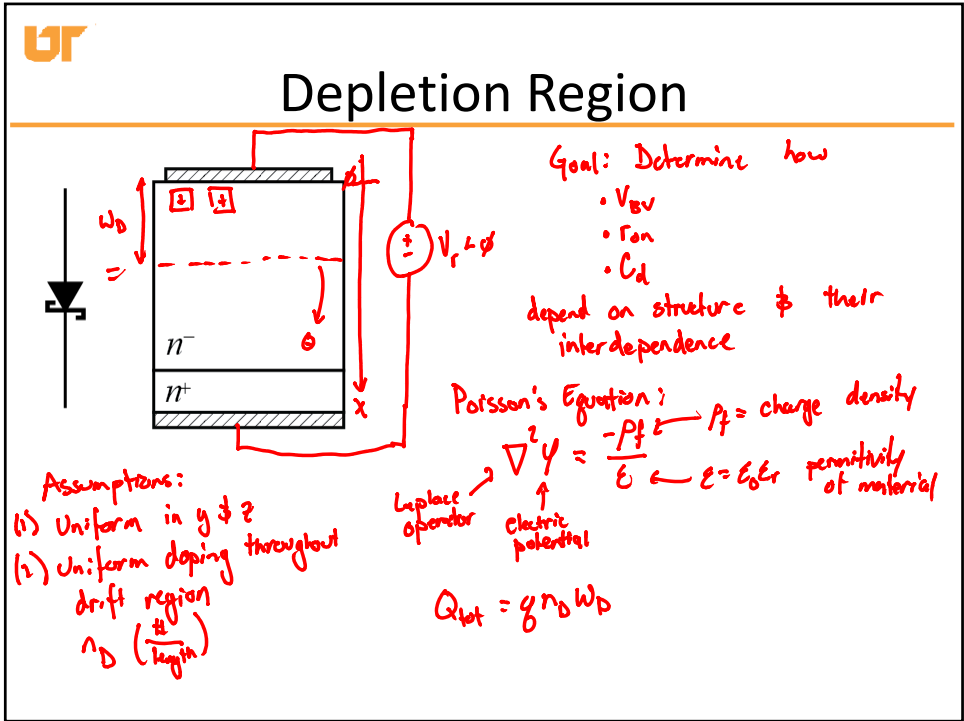 UT
Depletion Region
W_D
=
+ +
ϕ
+
-
V_r < ϕ
⊖
n⁻
n⁺
x
Goal: Determine how
• V_BV
• r_on
• C_d
depend on structure & their
interdependence
Poisson's Equation:
∇²φ = -ρ_f / ε
ρ_f = charge density
ε = ε₀ε_r permitivity
of material
Laplace
operator
electric
potential
Q_tot = q n_D W_D
Assumptions:
(1) Uniform in y & z
(2) Uniform doping throughout
drift region
n_D (#/length)